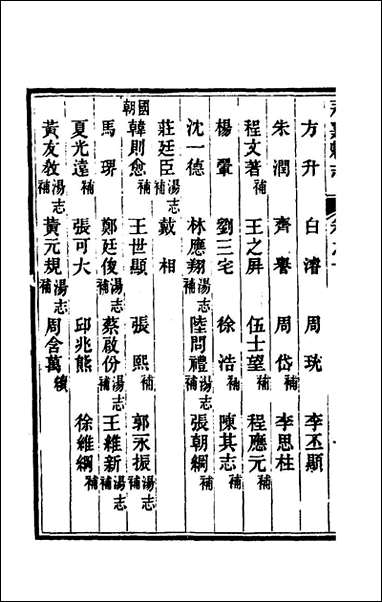 方升　白濬　周珫　李丕顯
朱潤　齊譽　周岱補　李思柱
程文著補　王之屏　伍士望補　程應元補
楊鞏　劉三宅　徐浩補　陳其志補
沈一德　林應翔湯志補　陸問禮湯志補　張朝綱補
莊廷臣湯志補　戴相
國朝韓則愈　王世顯　張熙補　郭永振湯志補
馬琾　鄭廷俊湯志補　蔡啟份湯志補　王維新湯志補
夏光遠補　張可大　邱兆熊　徐維綱補
黃友敎湯志補　黃元規湯志補　周含萬續